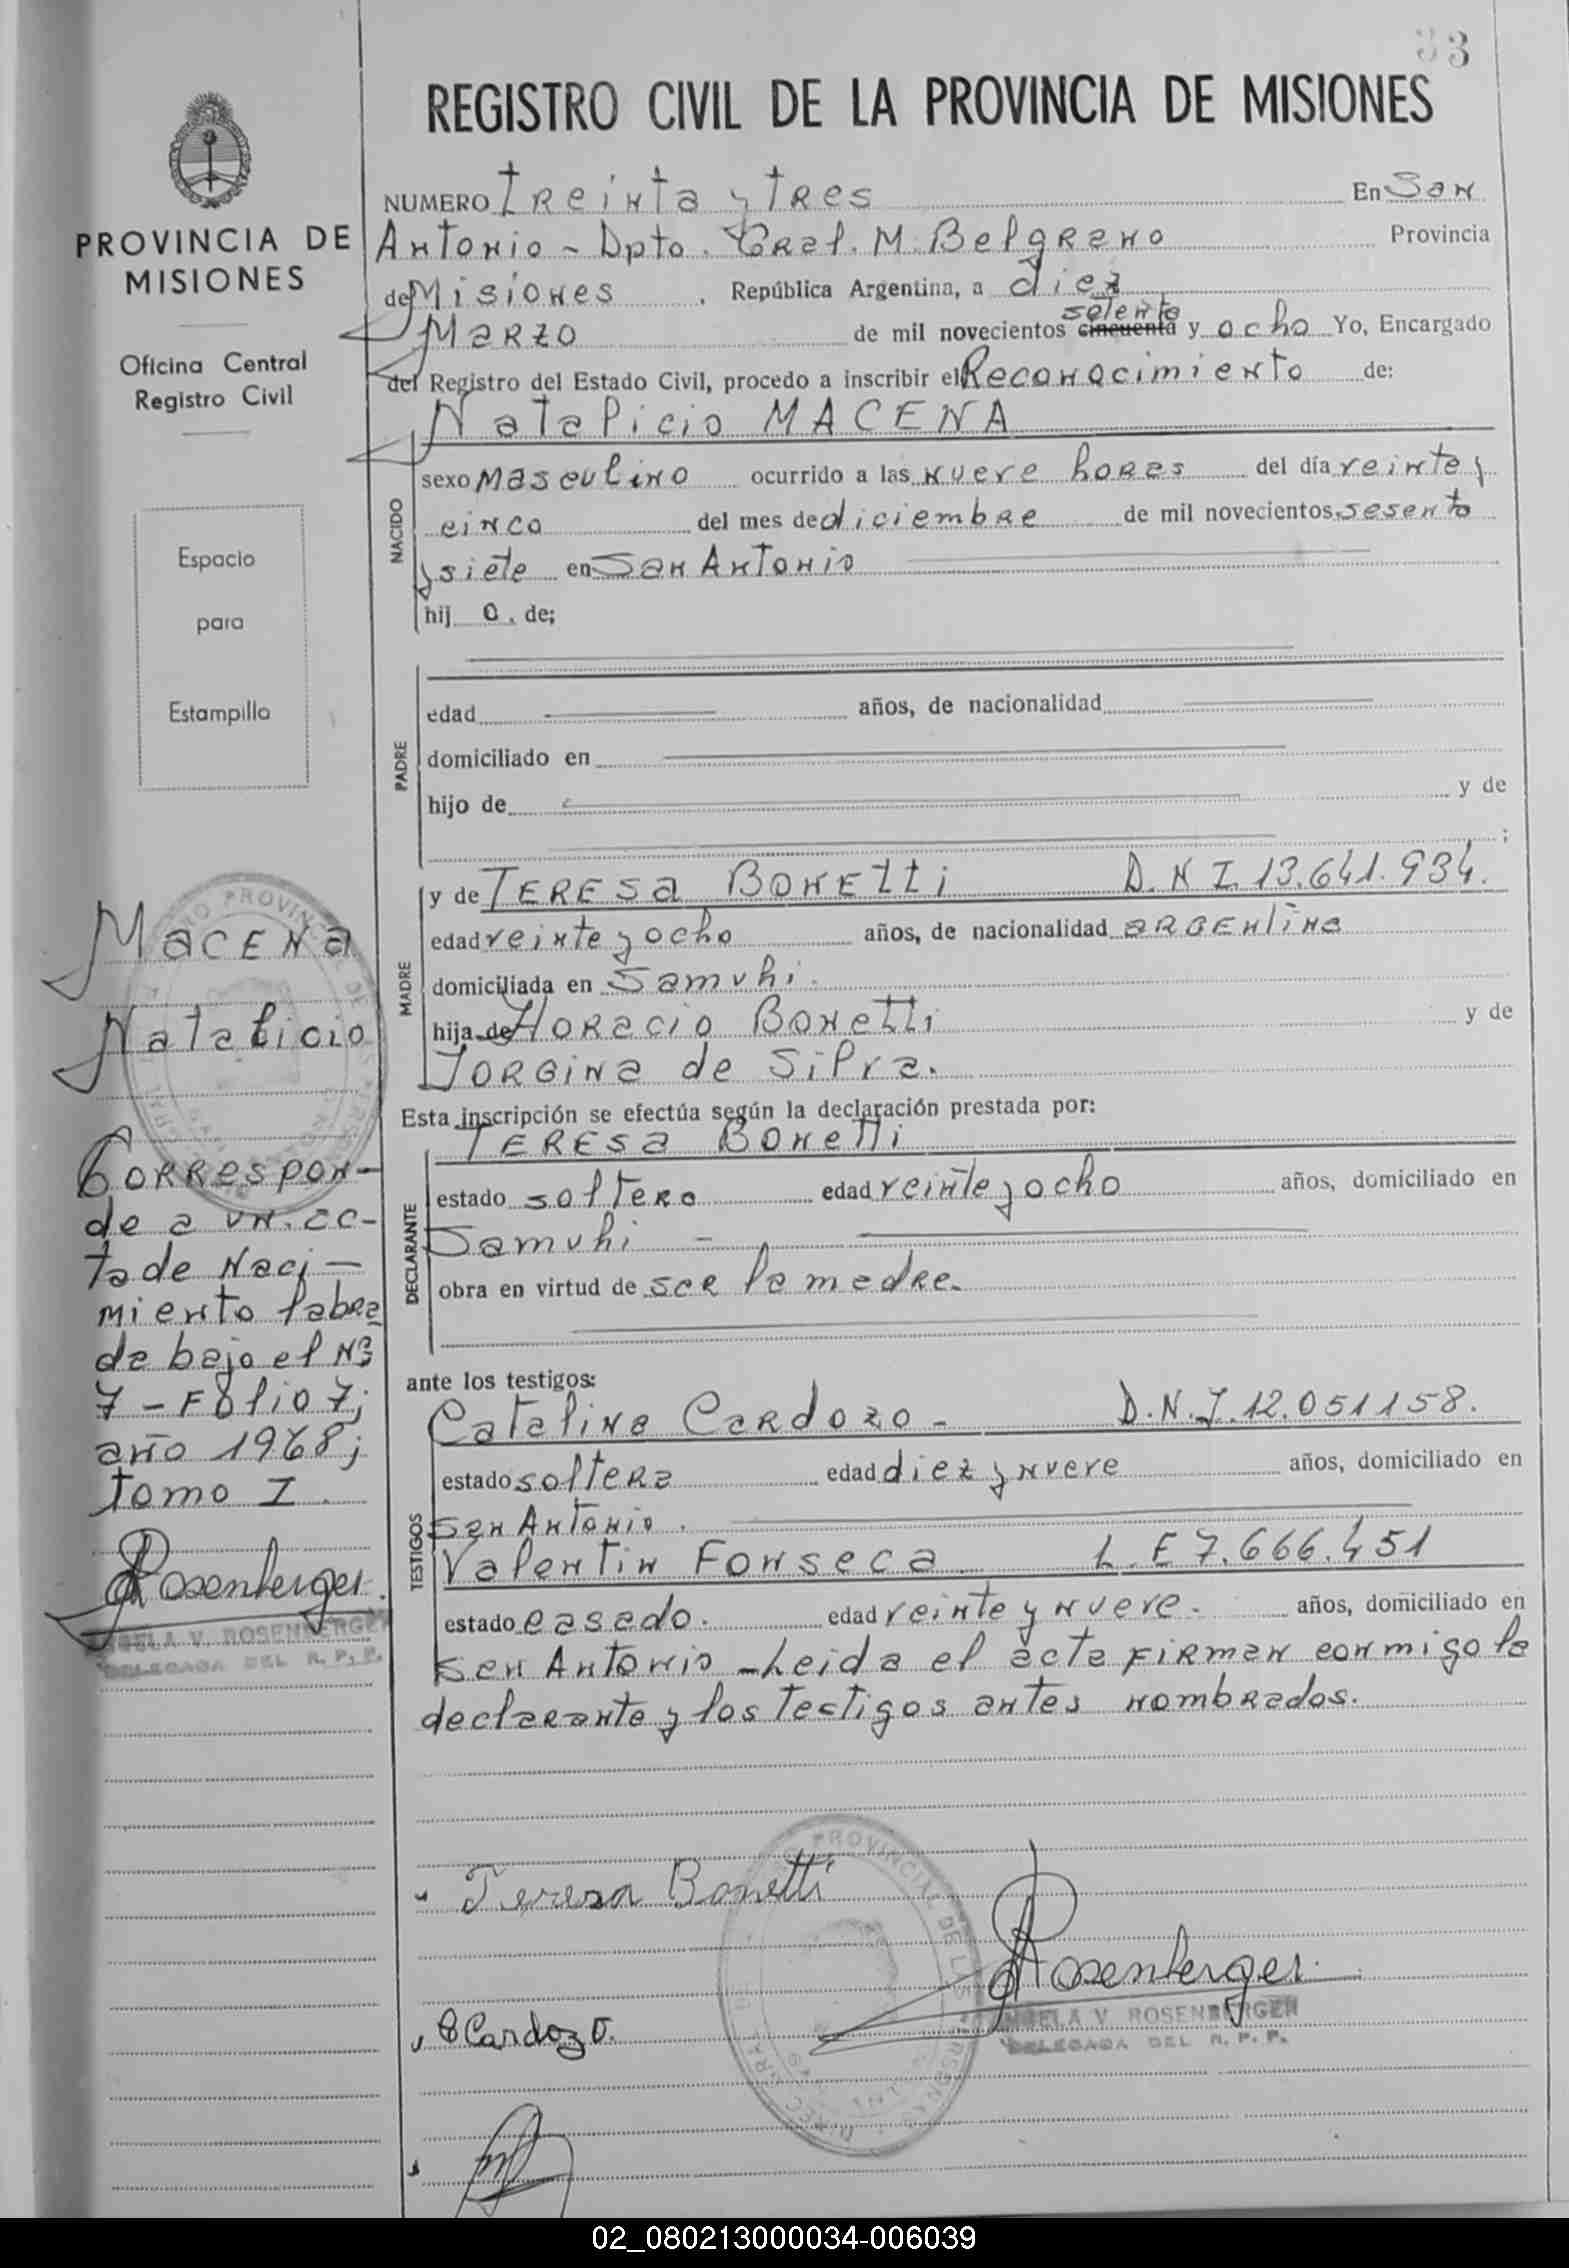 33
REGISTRO CIVIL DE LA PROVINCIA DE MISIONES
PROVINCIA DE
MISIONES
Oficina Central
Registro Civil
Espacio
para
Estampilla
NUMERO Treinta y tres En San
Antonio - Dpto. Gral. M. Belgrano Provincia
de Misiones, República Argentina, a diez
Marzo de mil novecientos cincuenta setenta y ocho Yo, Encargado
del Registro del Estado Civil, procedo a inscribir el Reconocimiento de:
Natalicio MACENA
NACIDO
sexo Masculino ocurrido a las nueve horas del día veinte y
cinco del mes de diciembre de mil novecientos sesenta
y siete en San Antonio
hij o. de;
PADRE
edad años, de nacionalidad
domiciliado en
hijo de y de
;
MADRE
y de TERESA BONETTI D.N.I. 13.641.934.
edad veinte y ocho años, de nacionalidad argentina
domiciliada en Samuhi.
hija de Horacio Bonetti y de
Jorgina de Silva.
Esta inscripción se efectúa según la declaración prestada por:
TERESA Bonetti
DECLARANTE
estado soltero edad veinte y ocho años, domiciliado en
Samuhi -
obra en virtud de ser la madre.
ante los testigos:
TESTIGOS
Catalina Cardozo - D.N.I. 12.051158.
estado soltera edad diez y nueve años, domiciliado en
San Antonio.
Valentin Fonseca L.E 7.666.451
estado casado. edad veinte y nueve. años, domiciliado en
San Antonio - Leida el acta firman conmigo la
declarante y los testigos antes nombrados.
Macena
Natalicio
Correspon-
de a un. ac-
ta de Naci-
miento labra
da bajo el Nº
7 - Folio 7;
año 1968;
tomo I.
Rosenberger
ANGELA V. ROSENBERGER
DELEGADA DEL R. P. P.
Teresa Bonetti
Rosenberger
ANGELA V. ROSENBERGER
DELEGADA DEL R. P. P.
C Cardozo.
02_080213000034-006039